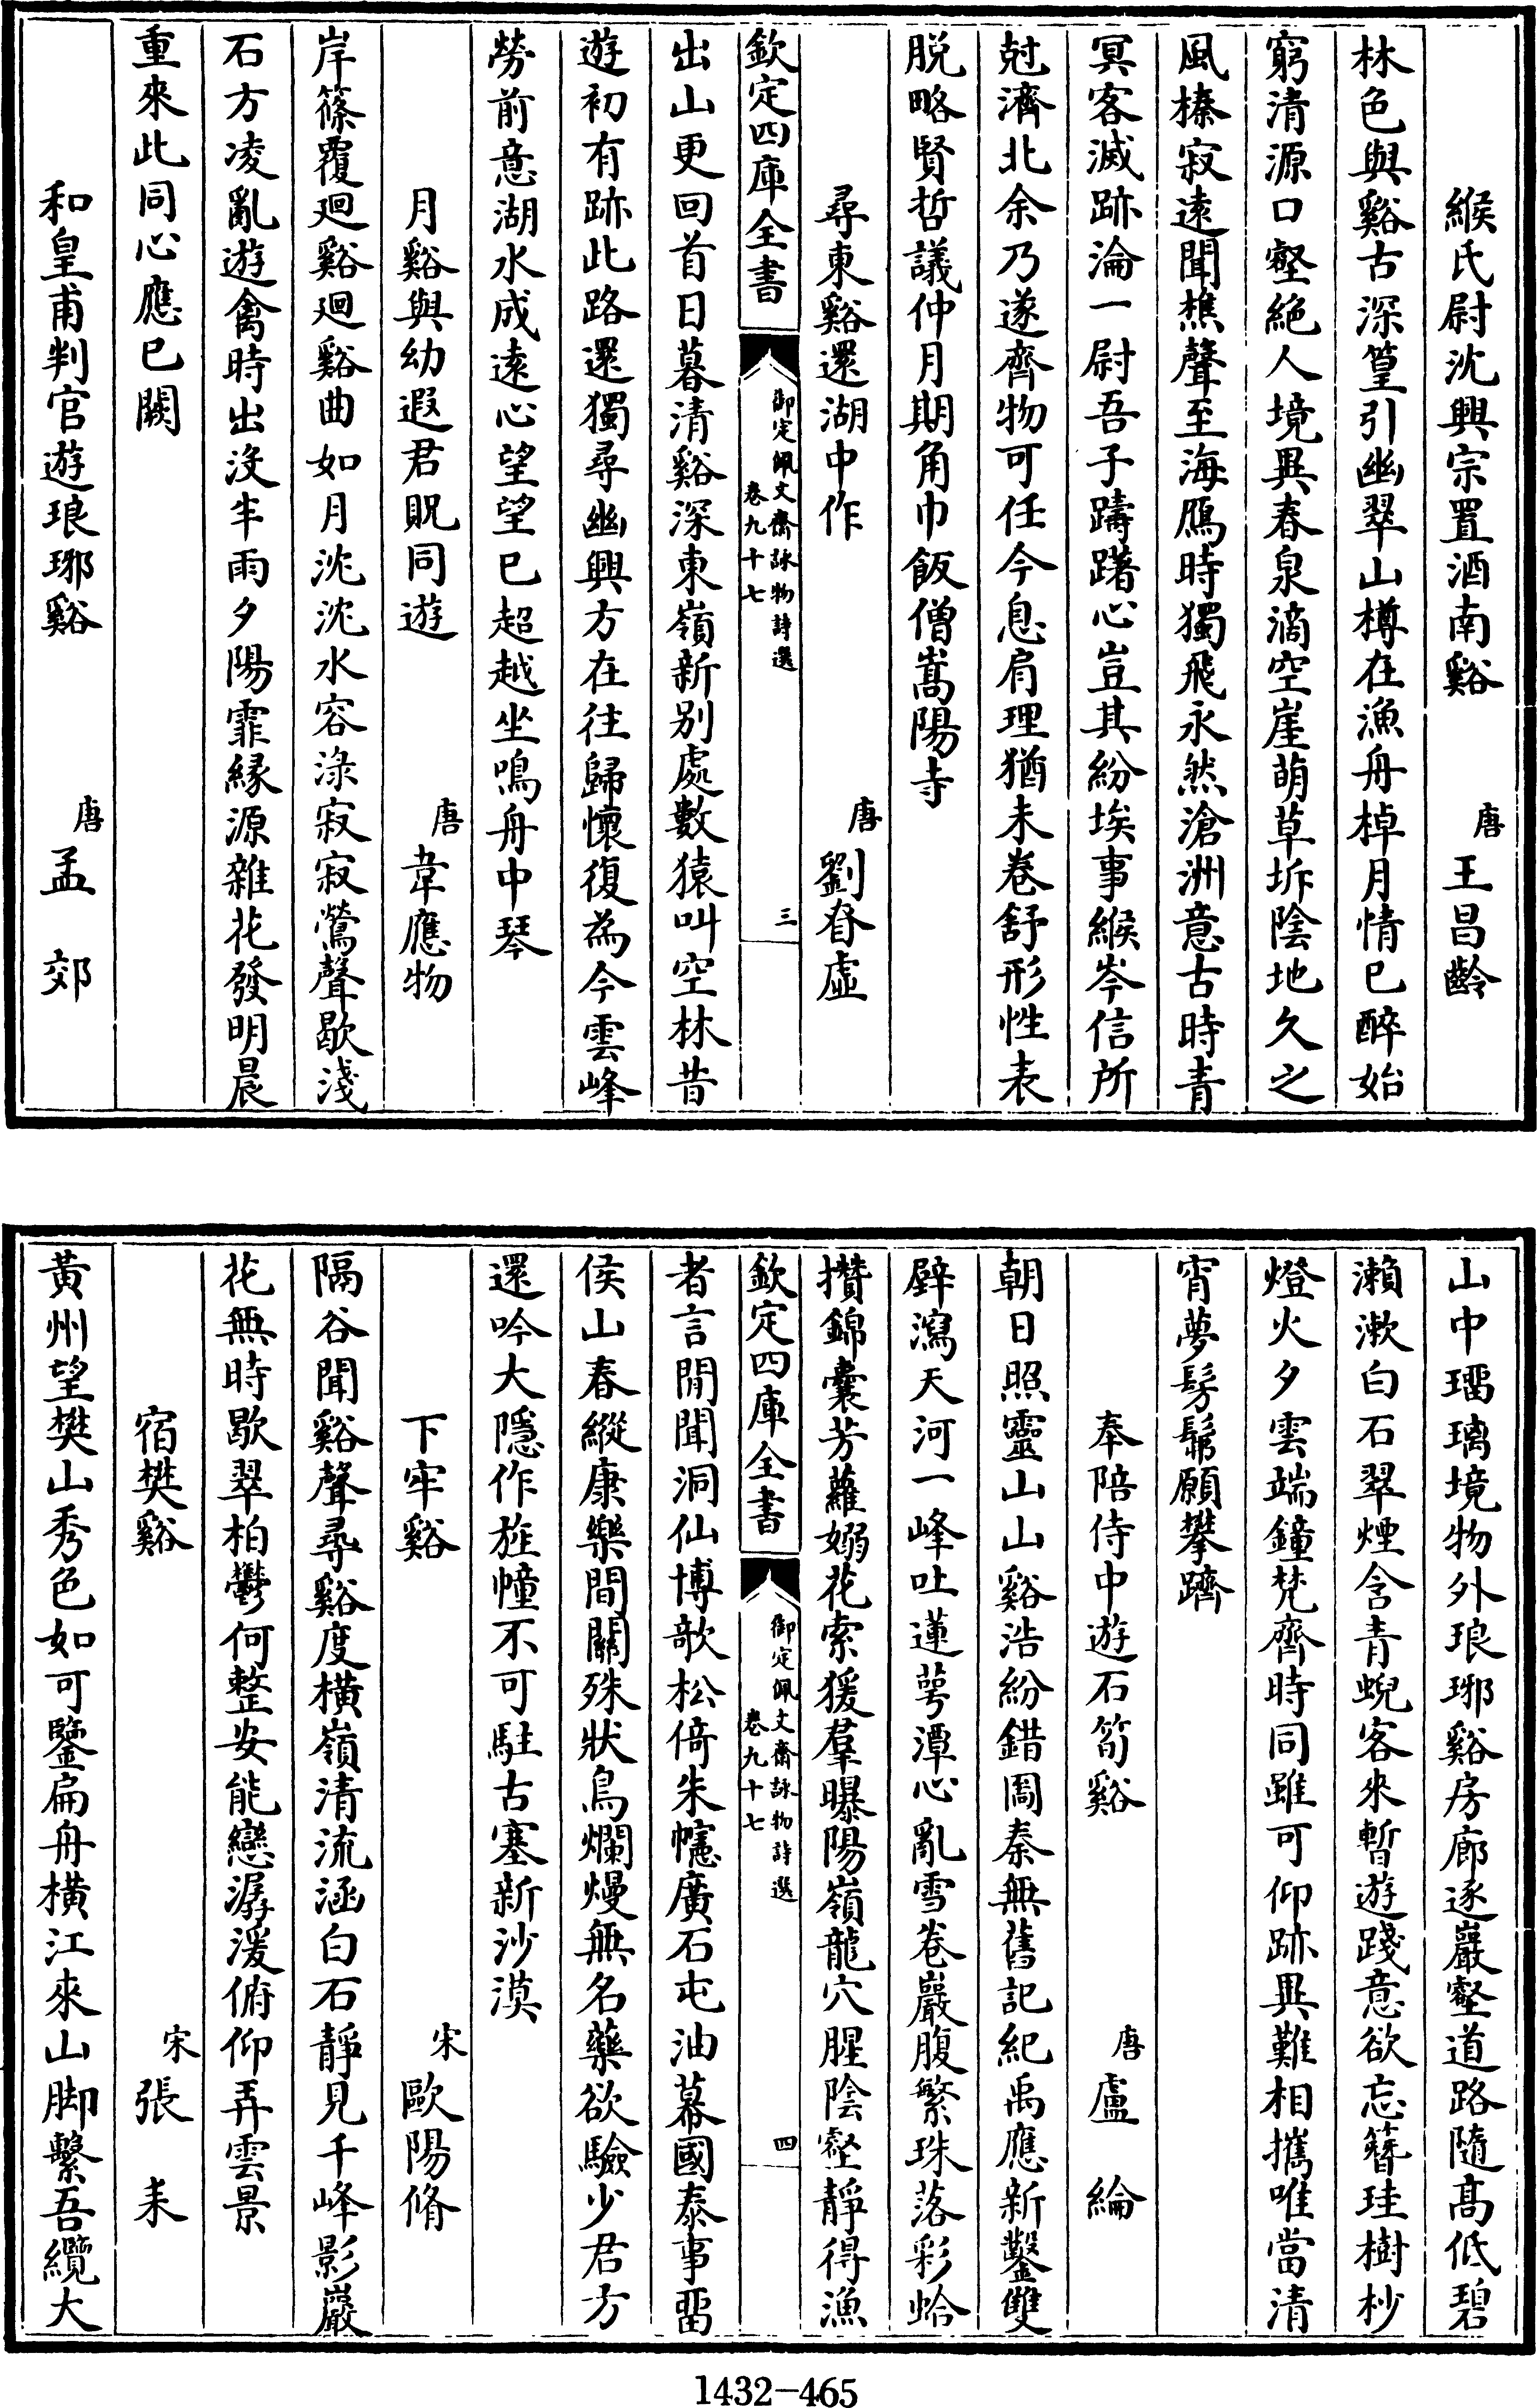 緱氏尉沈興宗置酒南谿 唐 王昌齡
林色與谿古深篁引幽翠山樽在漁舟棹月情已醉始
窮清源口壑絶人境異春泉滴空崖萌草坼陰地久之
風榛寂遠聞樵聲至海鴈時獨飛永然滄洲意古時青
冥客滅跡淪一尉吾子躊躇心豈其紛埃事緱岑信所
尅濟北余乃遂齊物可任今息肩理猶未卷舒形性表
脱略賢哲議仲月期角巾飯僧嵩陽寺
尋東谿還湖中作 唐 劉眘虛
欽定四庫全書 御定佩文齋詠物詩選 卷九十七 三
出山更回首日暮清谿深東嶺新别處數猿叫空林昔
遊初有跡此路還獨尋幽興方在往歸懷復為今雲峰
勞前意湖水成遠心望望已超越坐鳴舟中琴
月谿與幼遐君貺同遊 唐 韋應物
岸篠覆廻谿廻谿曲如月沈沈水容渌寂寂鶯聲歇淺
石方凌亂遊禽時出没半雨夕陽霏緣源雜花發明晨
重來此同心應已闕
和皇甫判官遊琅琊谿 唐 孟 郊
山中瑠璃境物外琅琊谿房廊逐巖壑道路隨髙低碧
瀨漱白石翠煙含青蜺客來暫遊踐意欲忘簪珪樹杪
燈火夕雲端鐘梵齊時同雖可仰跡異難相攜唯當清
宵夢髣髴願攀躋
奉陪侍中遊石筍谿 唐 盧 綸
朝日照靈山山谿浩紛錯圖秦無舊記紀禹應新鑿雙
壁瀉天河一峰吐蓮萼潭心亂雪卷巖腹繁珠落彩蛤
攢錦囊芳蘿嫋花索猨羣曝陽嶺龍穴腥陰壑靜得漁
欽定四庫全書 御定佩文齋詠物詩選 卷九十七 四
者言閒聞洞仙博欹松倚朱幰廣石屯油幕國泰事畱
侯山春縱康樂間關殊狀鳥爛熳無名藥欲驗少君方
還吟大隱作旌幢不可駐古塞新沙漠
下牢谿 宋 歐陽脩
隔谷聞谿聲尋谿度橫嶺清流涵白石靜見千峰影巖
花無時歇翠柏鬱何整安能戀潺湲俯仰弄雲景
宿樊谿 宋 張 耒
黃州望樊山秀色如可鑒扁舟橫江來山脚繫吾纜大
1432-465